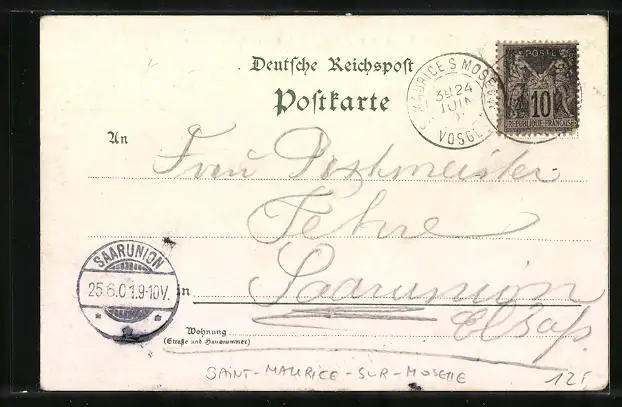 Deutsche Reichspost
Postkarte
ST MAURICE S MOSELLE
3E 24
JUIN
VOSGES
POSTES
10
REPUBLIQUE FRANÇAISE
An
Frau Postmeister
Fehre
SAARUNION
25.6.01.9-10V.
in Saarunion
Elsaß.
Wohnung
(Straße und Hausnummer)
SAINT-MAURICE-SUR-MOSELLE
12F